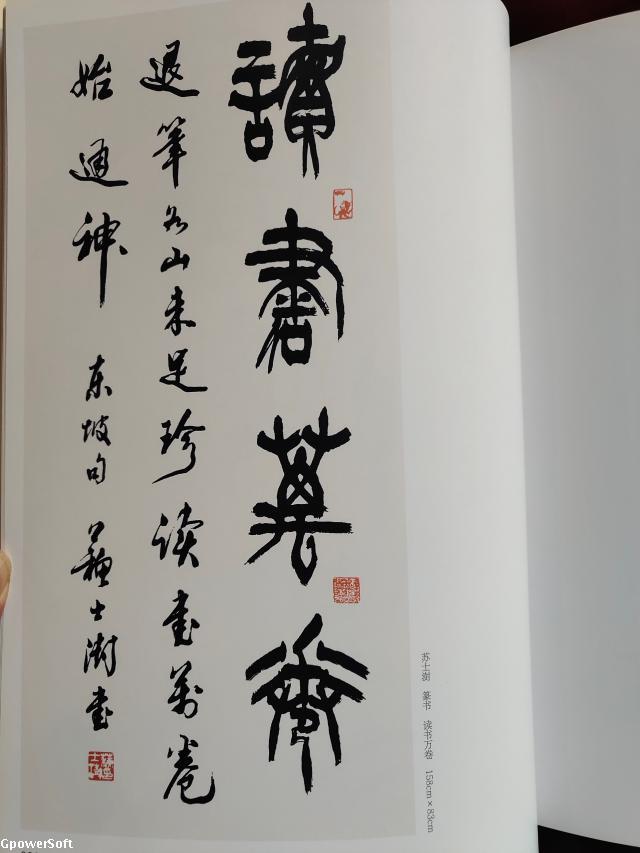 讀書萬卷
退筆如山未足珍读書萬卷
始通神 东坡句 蘇士澍書
苏士澍 篆书 读书万卷 158cm×83cm
GpowerSoft